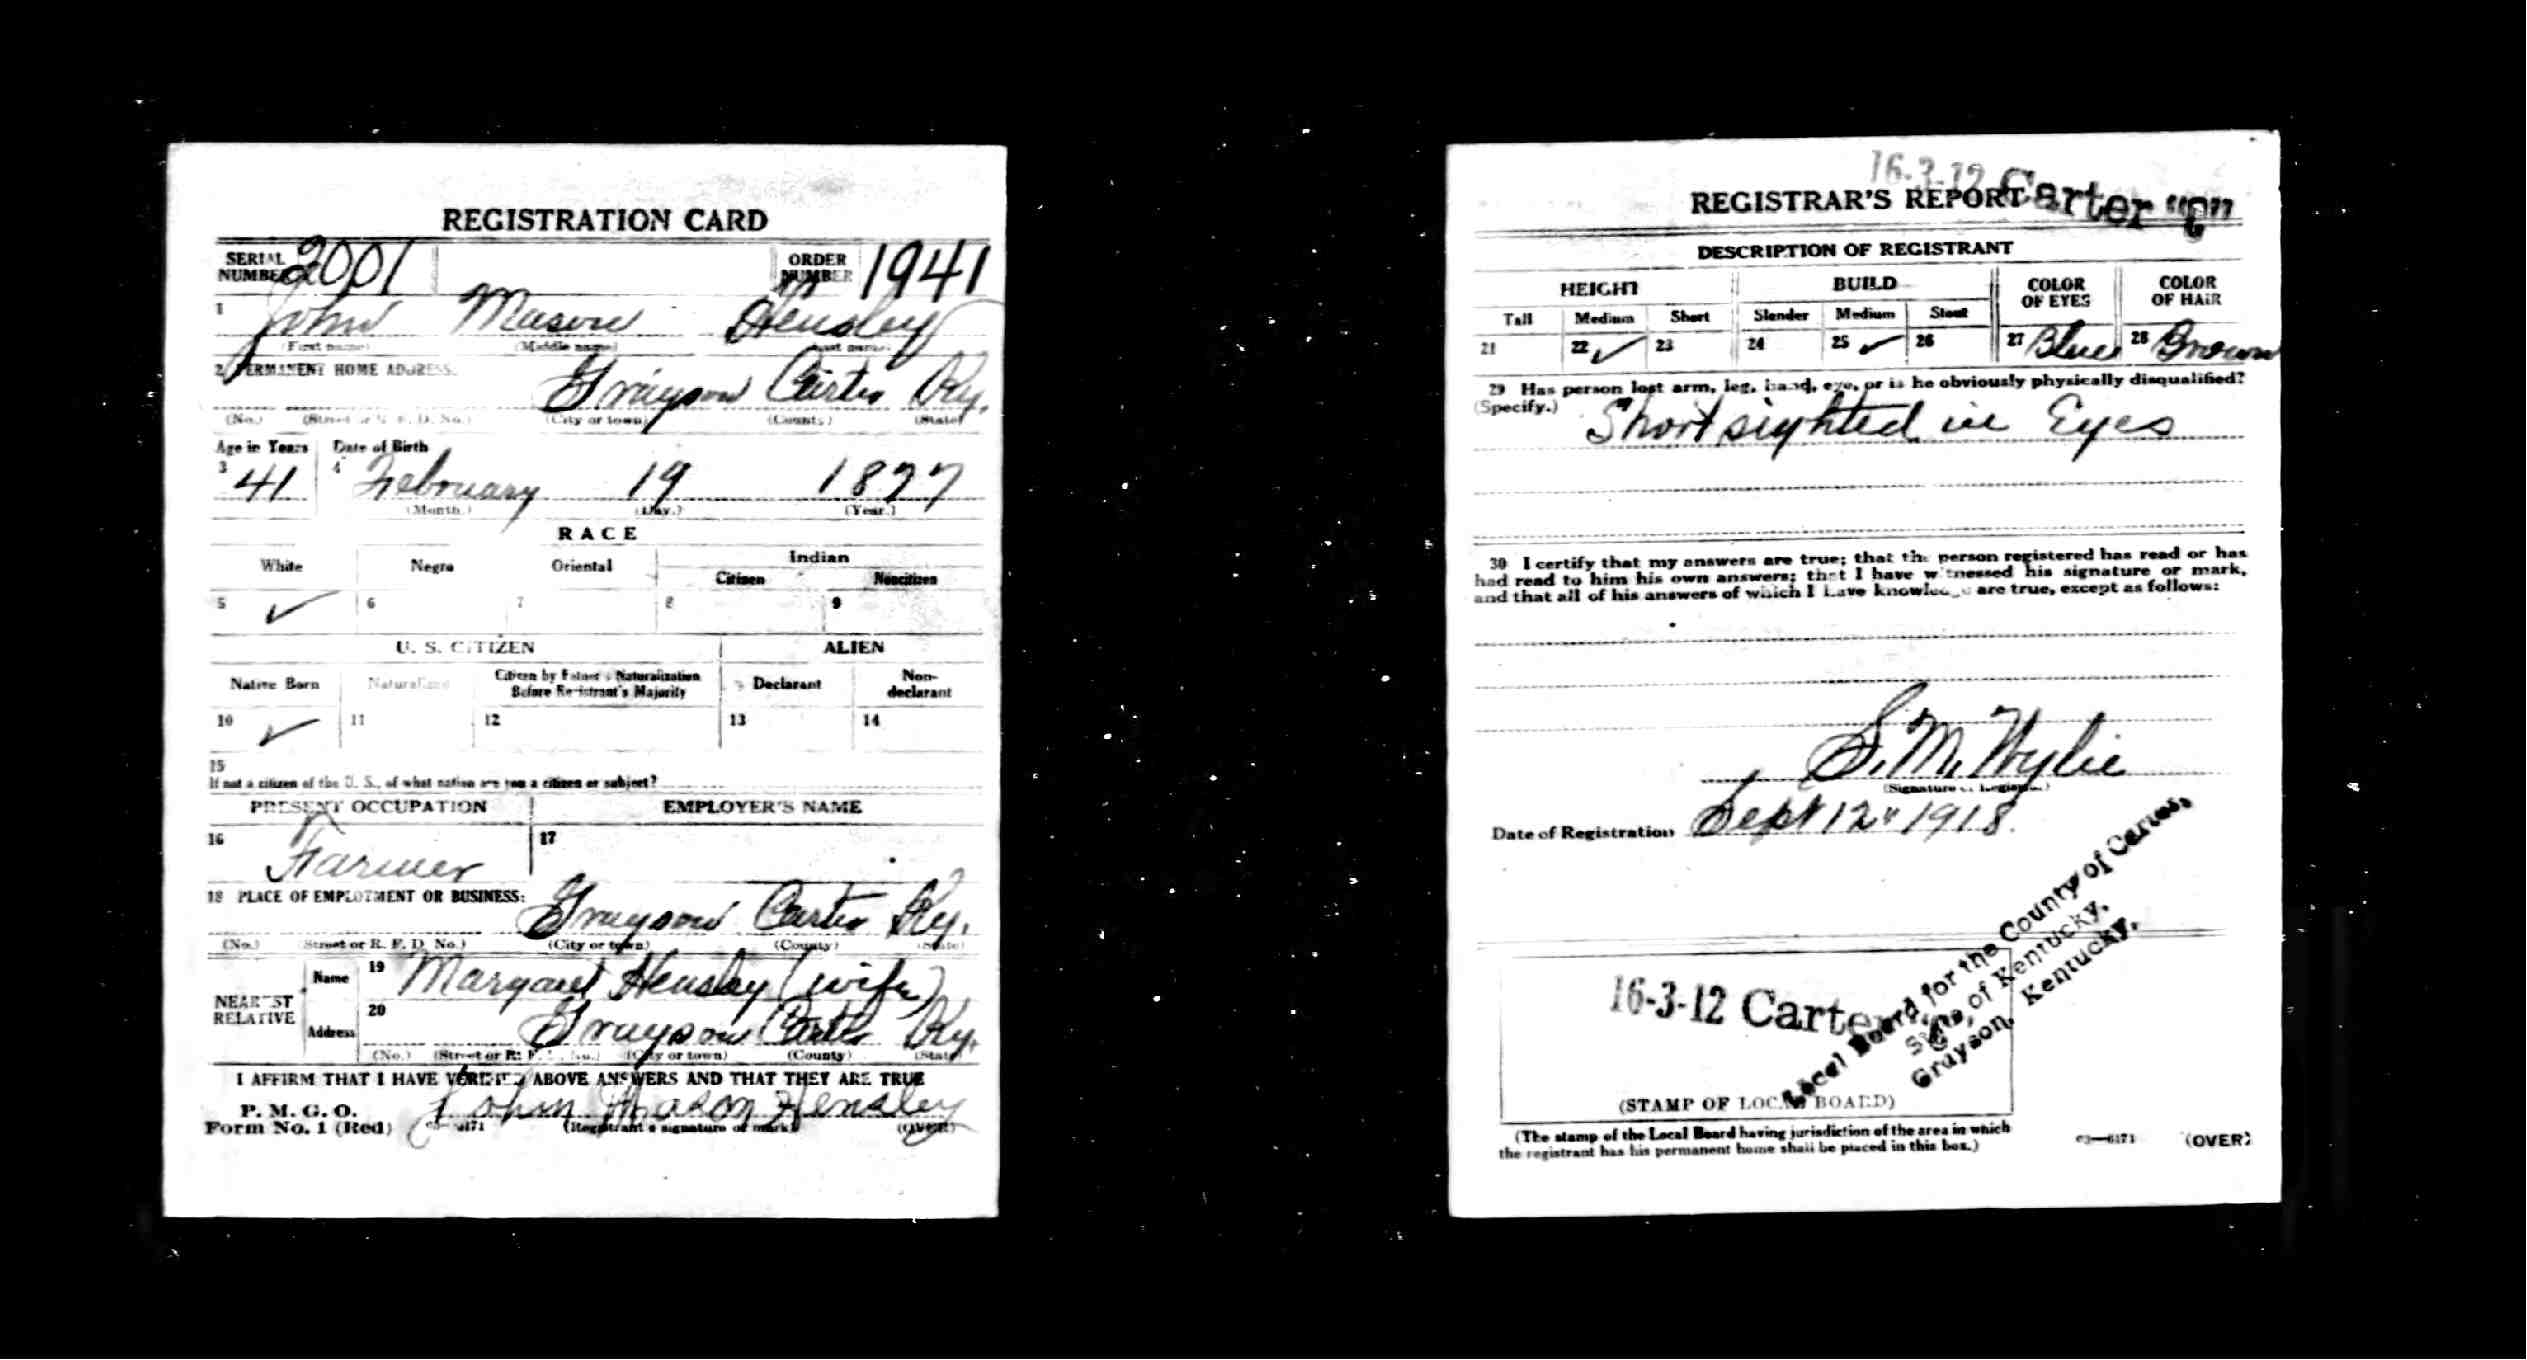 REGISTRATION CARD
SERIAL NUMBER 2001 ORDER NUMBER 1941
1 John Mason Hensley
(First name) (Middle name) (Last name)
2 PERMANENT HOME ADDRESS:
Grayson Carter Ky.
(No.) (Street or R. F. D. No.) (City or town) (County) (State)
Age in Years Date of Birth
3 41 4 February 19 1877
(Month.) (Day.) (Year.)
RACE
White Negro Oriental Indian
Citizen Noncitizen
5 ✓ 6 7 8 9
U. S. CITIZEN ALIEN
Native Born Naturalized Citizen by Father's Naturalization Before Registrant's Majority Declarant Non-declarant
10 ✓ 11 12 13 14
15
If not a citizen of the U. S., of what nation are you a citizen or subject?
PRESENT OCCUPATION EMPLOYER'S NAME
16 Farmer 17
18 PLACE OF EMPLOYMENT OR BUSINESS:
Grayson Carter Ky.
(No.) (Street or R. F. D. No.) (City or town) (County) (State)
NEAREST RELATIVE
Name 19 Margaret Hensley (wife)
Address 20 Grayson Carter Ky.
(No.) (Street or R. F. D. No.) (City or town) (County) (State)
I AFFIRM THAT I HAVE VERIFIED ABOVE ANSWERS AND THAT THEY ARE TRUE
P. M. G. O.
Form No. 1 (Red) John Mason Hensley
03—6171 (Registrant's signature or mark) (OVER)
16-3-12 Carter "C"
REGISTRAR'S REPORT
DESCRIPTION OF REGISTRANT
HEIGHT BUILD COLOR OF EYES COLOR OF HAIR
Tall Medium Short Slender Medium Stout
21 22 ✓ 23 24 25 ✓ 26 27 Blue 28 Brown
29 Has person lost arm, leg, hand, eye, or is he obviously physically disqualified?
(Specify.) Short sighted in Eyes
30 I certify that my answers are true; that the person registered has read or has
had read to him his own answers; that I have witnessed his signature or mark,
and that all of his answers of which I have knowledge are true, except as follows:
S. M. Wylie
(Signature of Registrar)
Date of Registration Sept 12" 1918.
16-3-12 Carter "C"
Local Board for the County of Carter,
State of Kentucky,
Grayson, Kentucky.
(STAMP OF LOCAL BOARD)
(The stamp of the Local Board having jurisdiction of the area in which
the registrant has his permanent home shall be placed in this box.)
03—6171 (OVER)